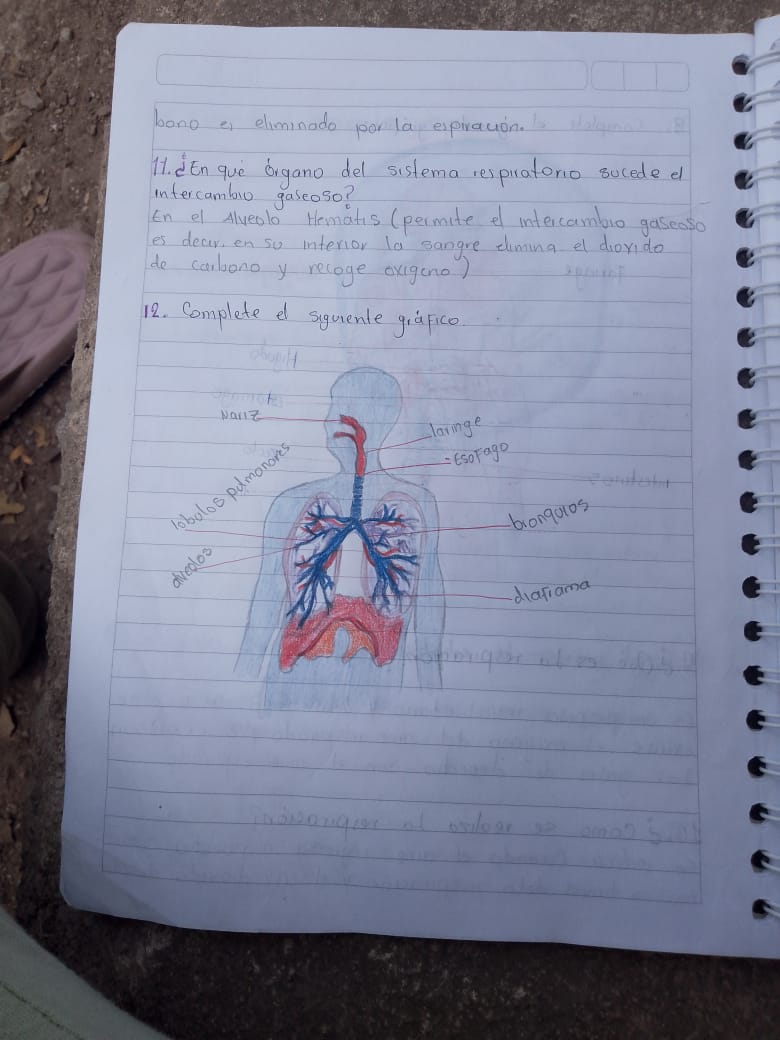 bono es eliminado por la espiración.
11. ¿En qué órgano del sistema respiratorio sucede el
intercambio gaseoso?
En el Alveolo Hematis (permite el intercambio gaseoso
es decir, en su interior la sangre elimina el dioxido
de carbono y recoge oxigeno)
12. Complete el siguiente gráfico.
Nariz
laringe
Esofago
lobulos pulmonares
bronquios
alveolos
diaframa